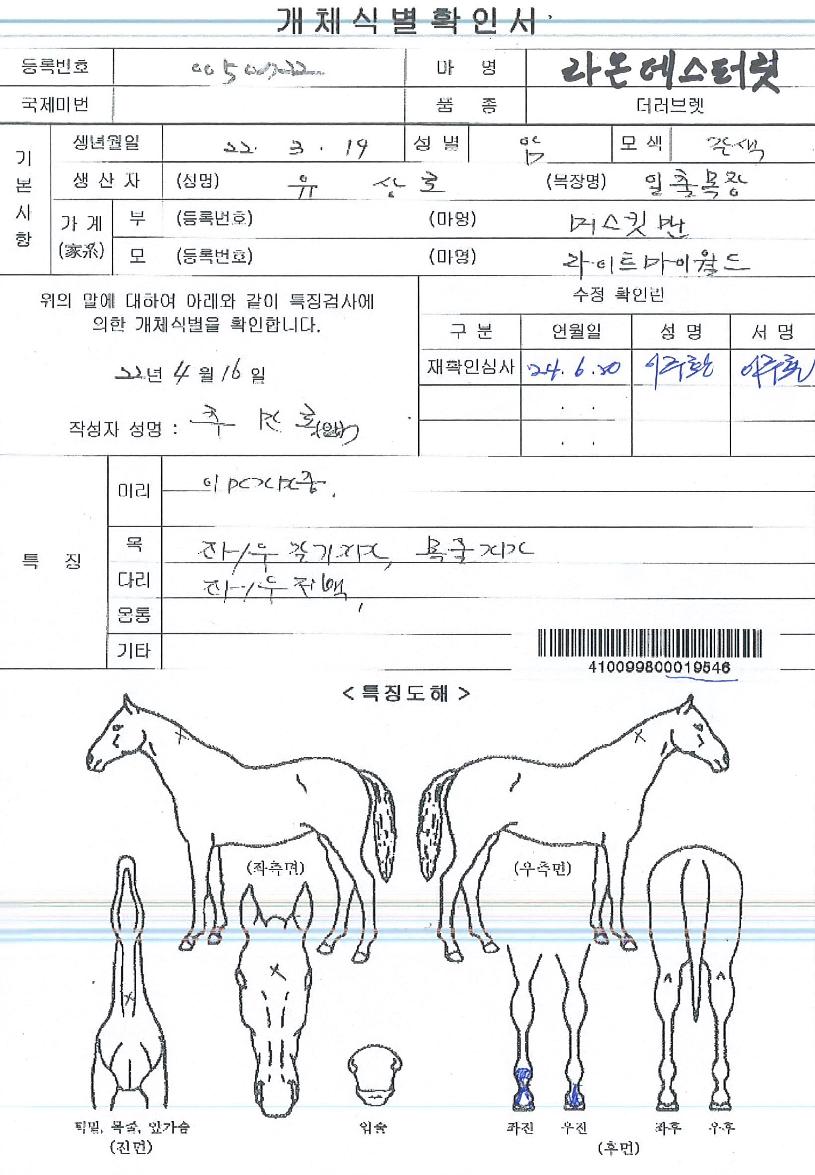 개체식별확인서
등록번호 마 명 라온데스터럿
국제마번 품 종 더러브렛
기본사항
생년월일 22. 3. 19 성 별 암 모 색
생 산 자 (성명) 유 상 호 (목장명) 일출목장
가 계 (家系) 부 (등록번호) (마명) 머스킷맨
모 (등록번호) (마명) 라이트마이월드
위의 말에 대하여 아래와 같이 특징검사에
의한 개체식별을 확인합니다.
22년 4월 16일
작성자 성명 :
수정 확인란
구 분 연월일 성 명 서 명
재확인심사 '24. 6. 20
. .
. .
특 징
머리
목
다리
몸통
기타
410099800019546
< 특징도해 >
(좌측면) (우측면)
턱밑, 목줄, 앞가슴
(전면)
입술
좌전 우전 좌후 우후
(후면)